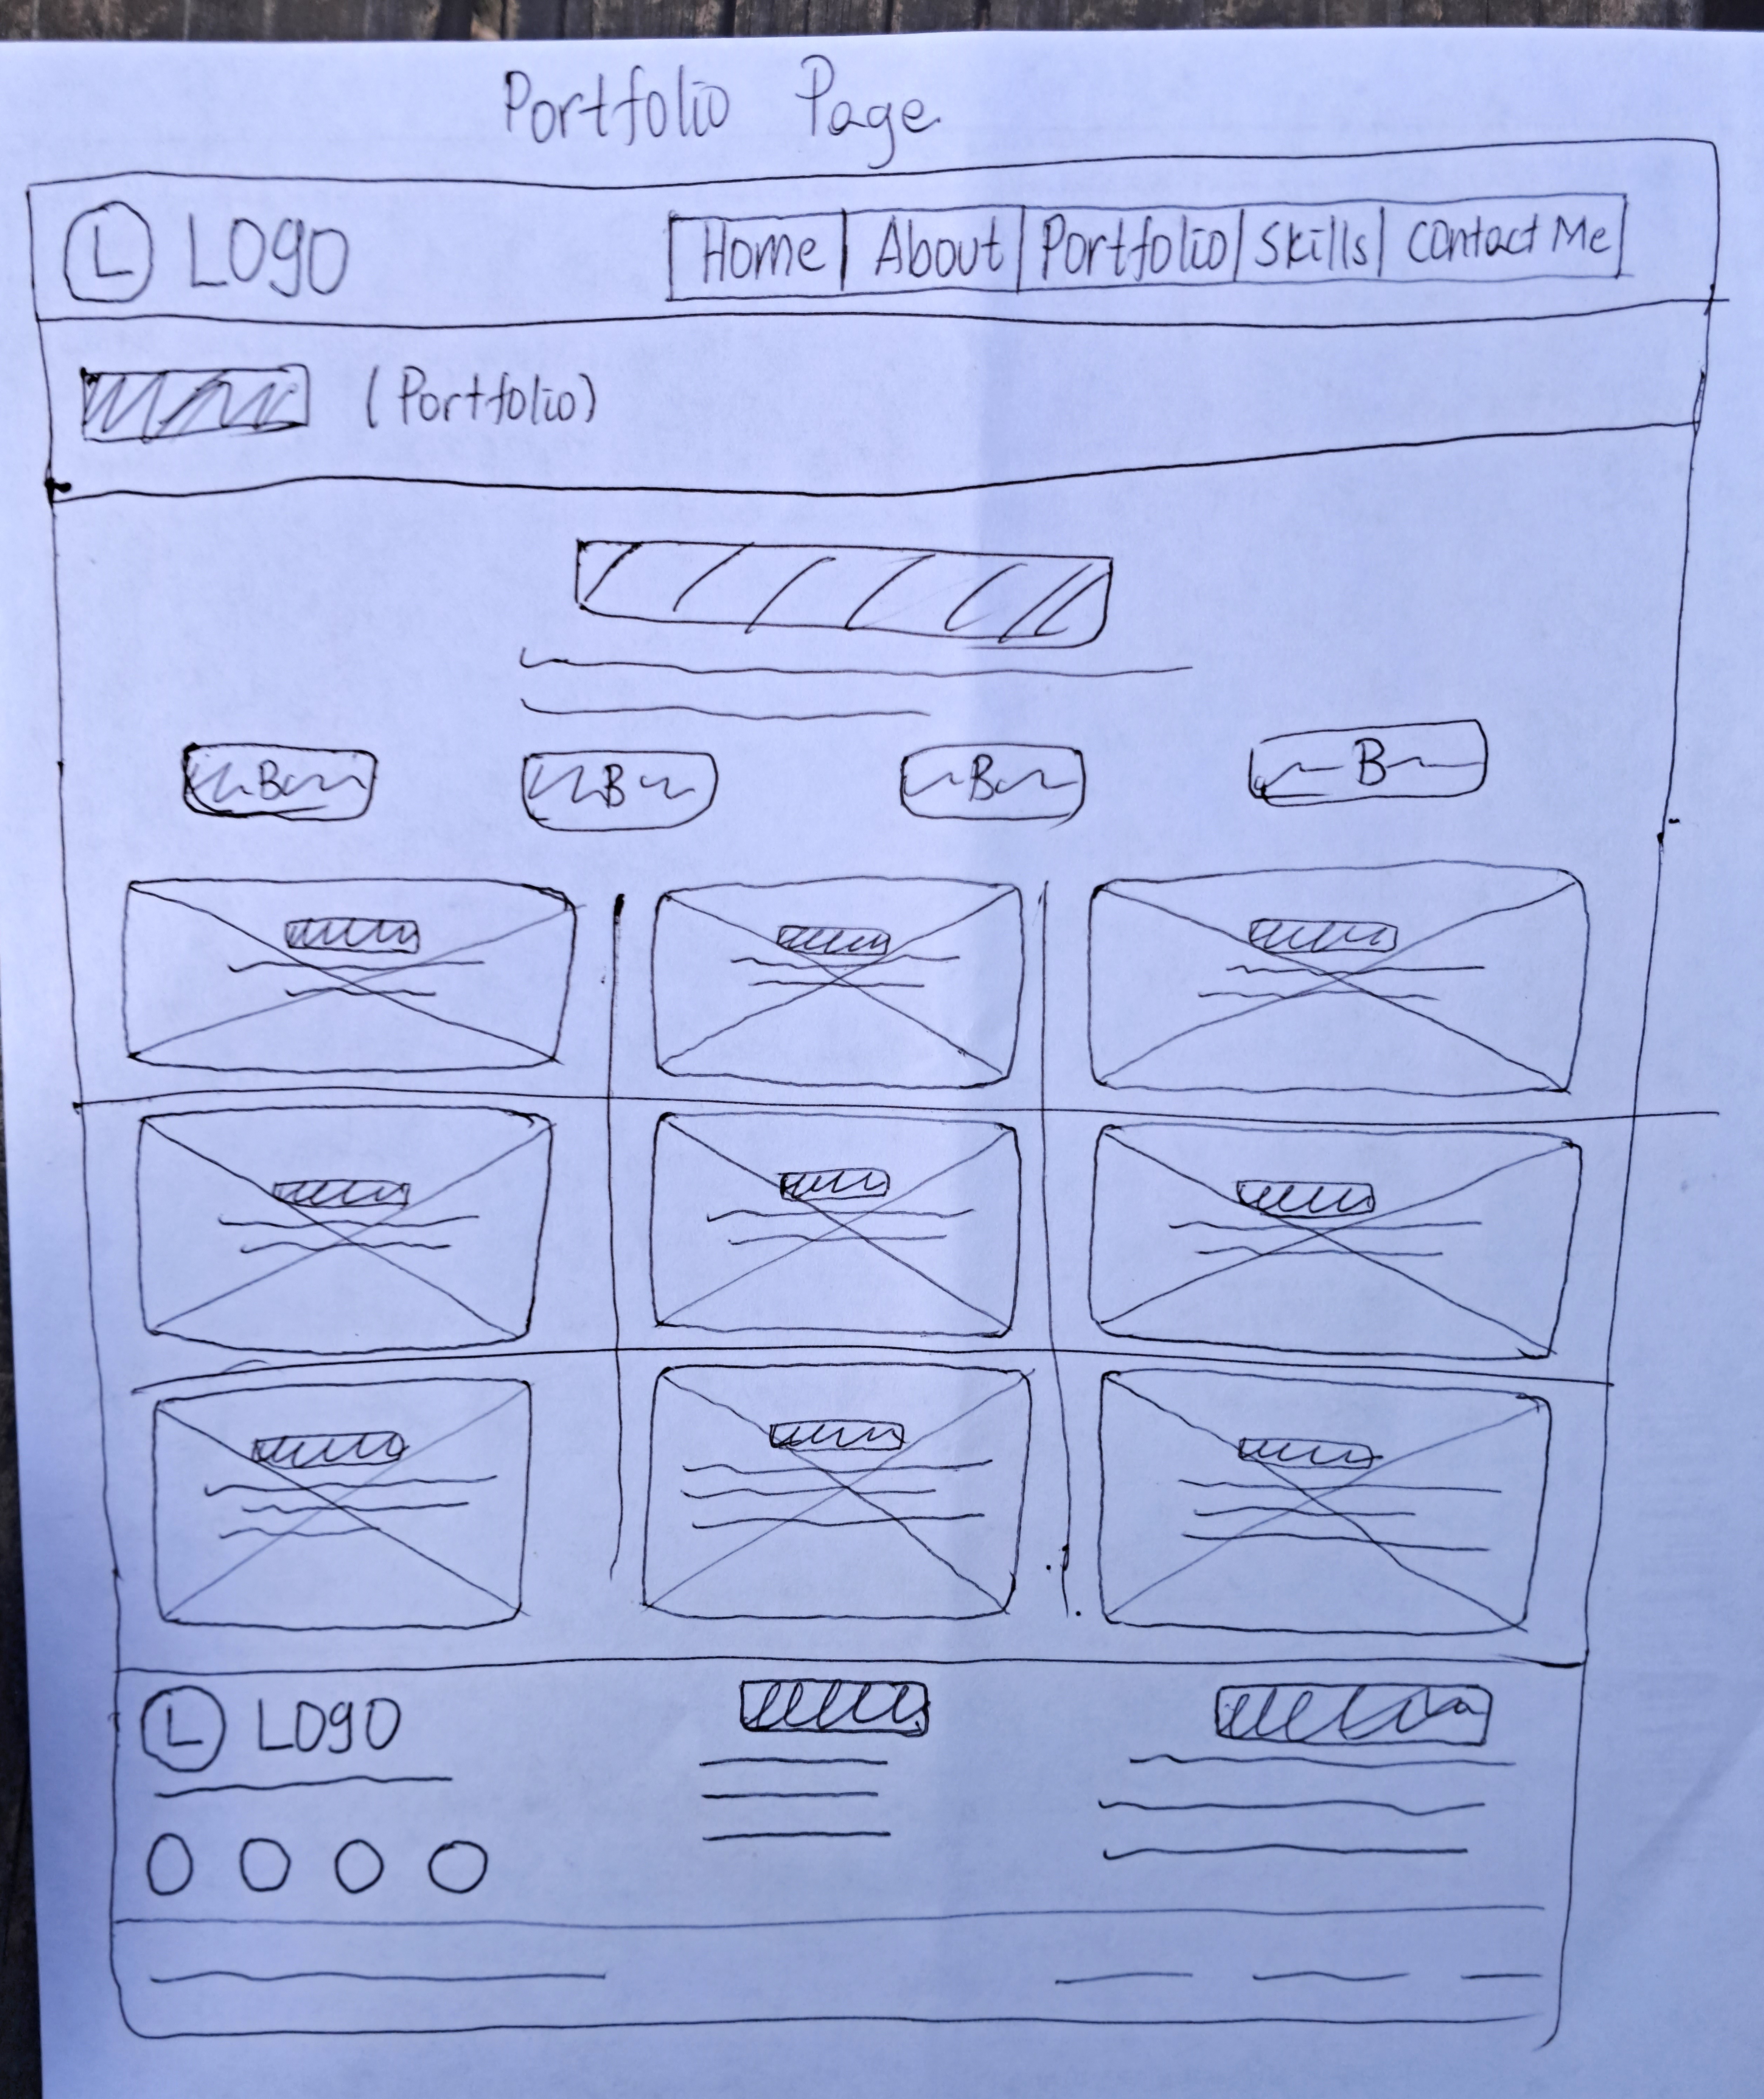 Portfolio Page
L LOGO Home About Portfolio Skills Contact Me
(Portfolio)
B B B B
L LOGO